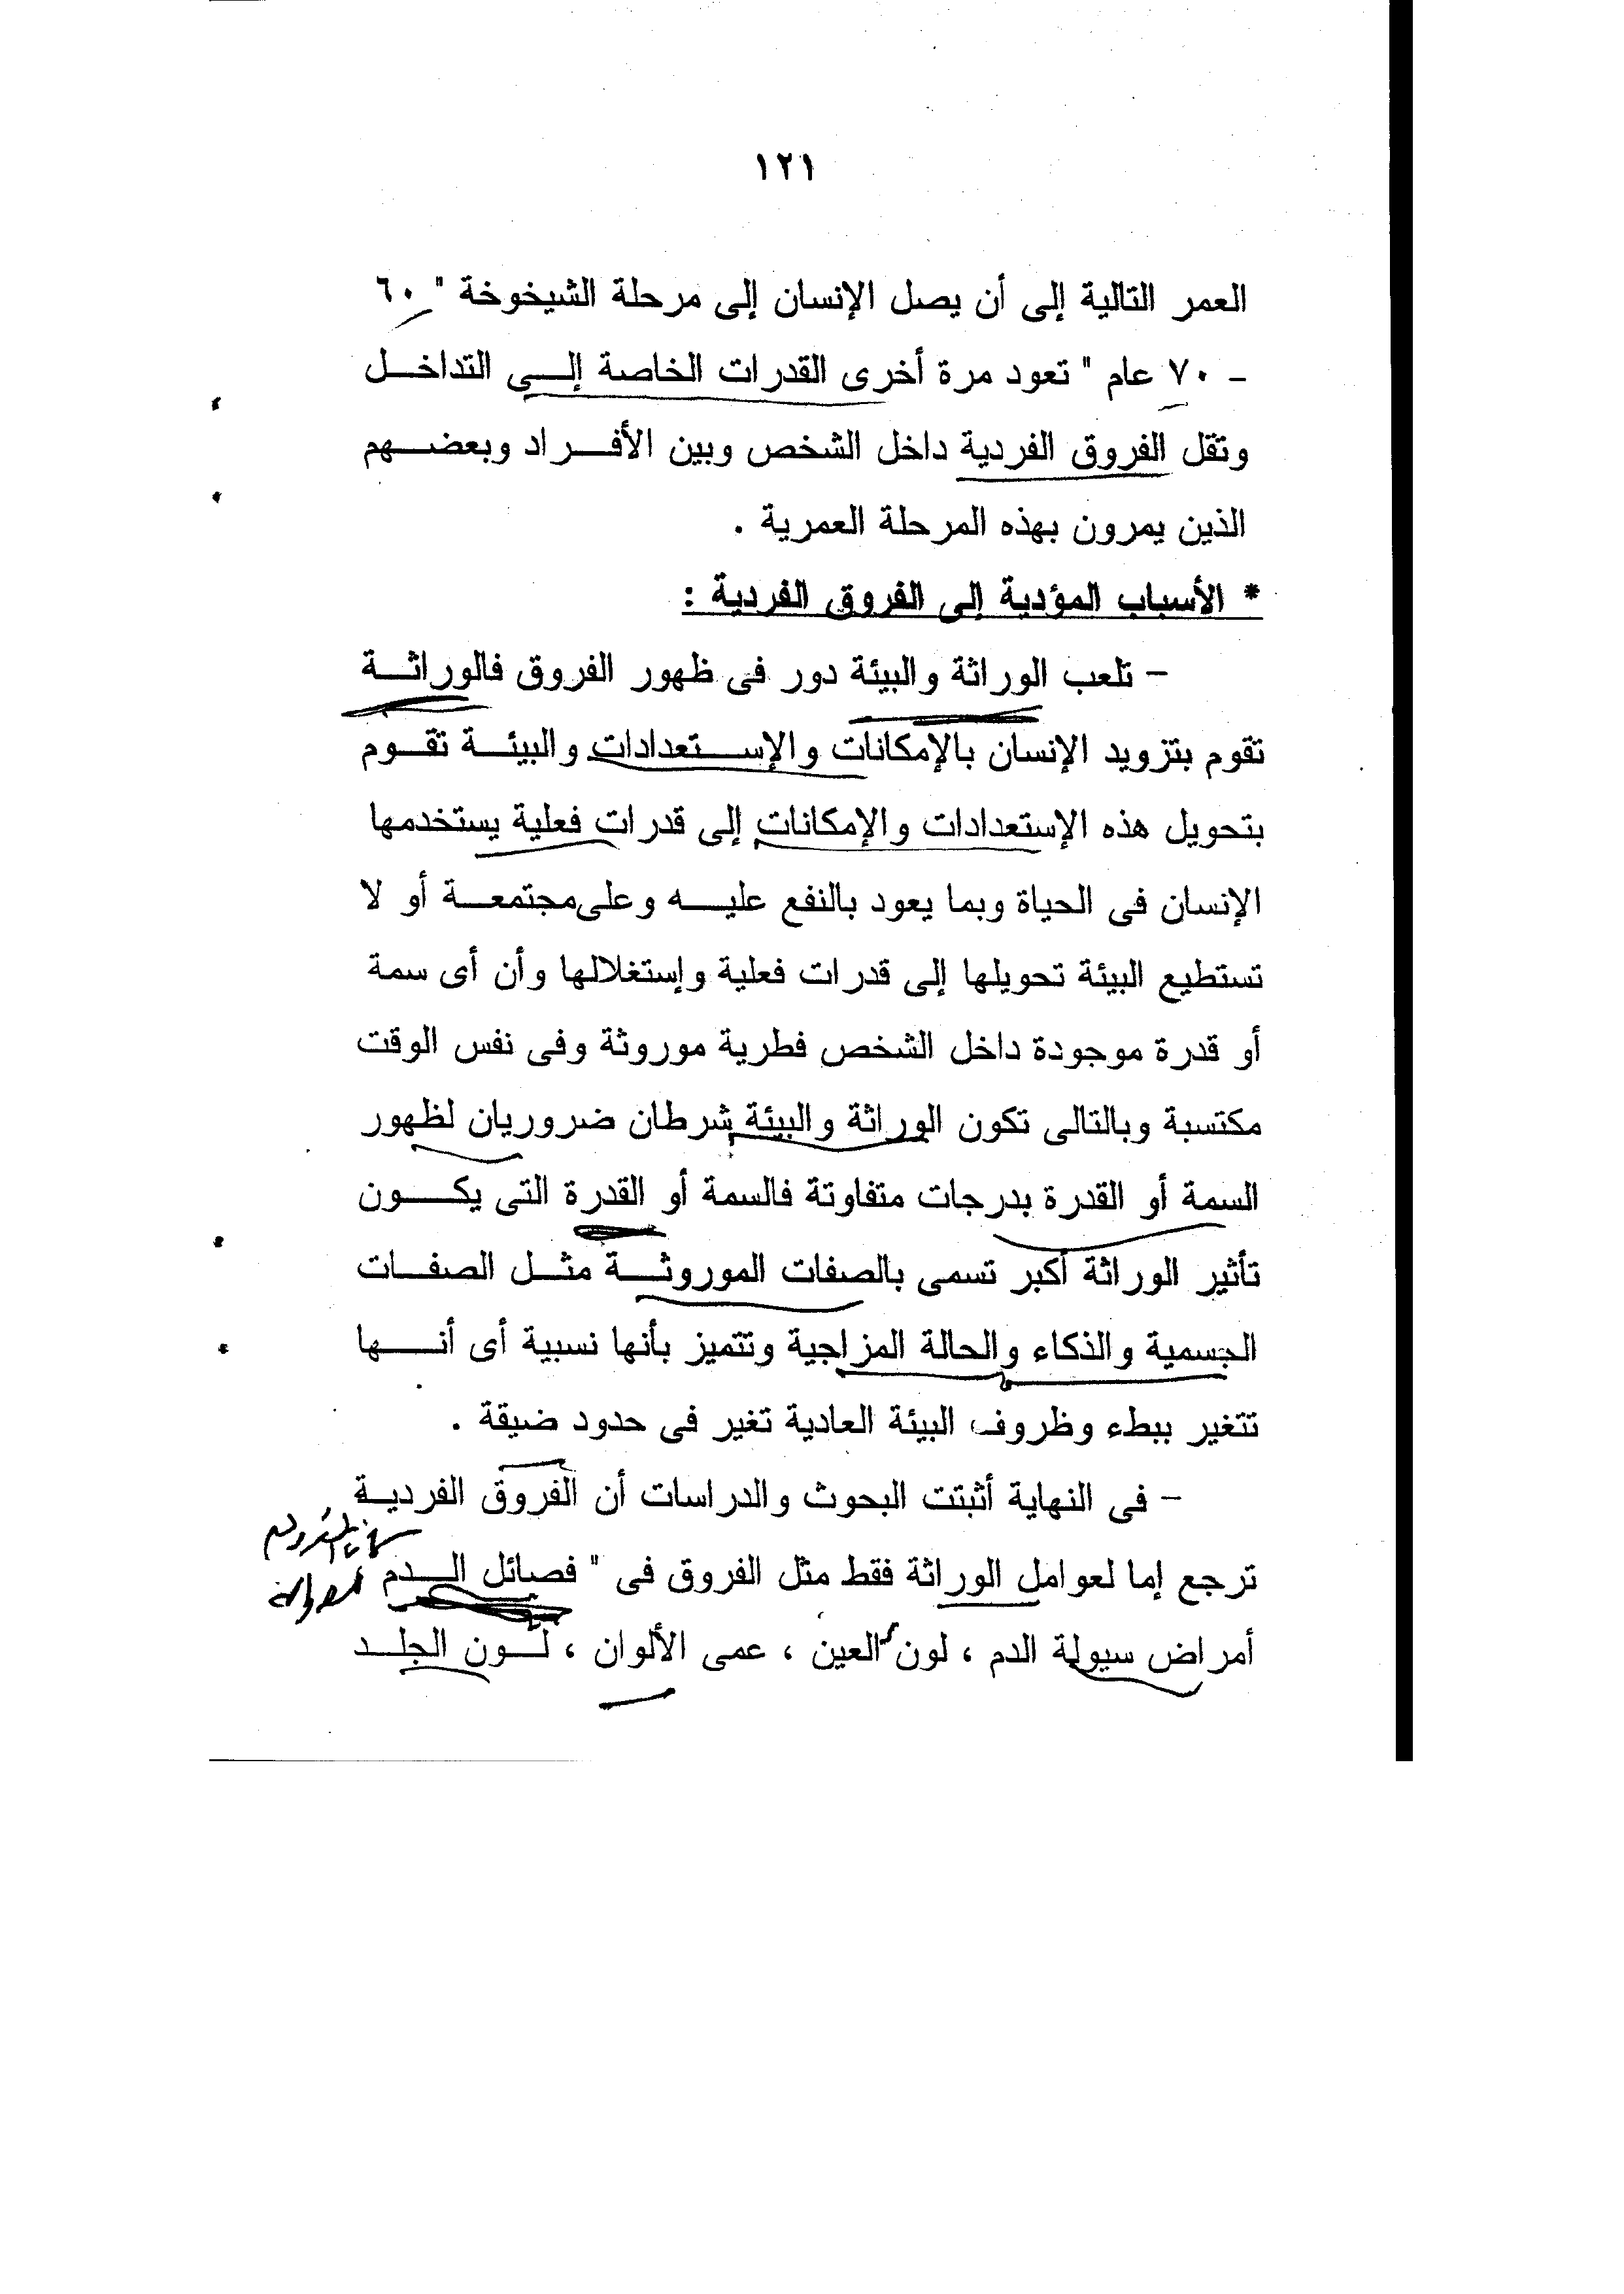 ١٢١
العمر التالية إلى أن يصل الإنسان إلى مرحلة الشيخوخة " ٦٠
- ٧٠ عام " تعود مرة أخرى القدرات الخاصة إلى التداخل
وتقل الفروق الفردية داخل الشخص وبين الأفراد وبعضهم
الذين يمرون بهذه المرحلة العمرية .
* الأسباب المؤدية إلى الفروق الفردية :
- تلعب الوراثة والبيئة دور فى ظهور الفروق فالوراثة
تقوم بتزويد الإنسان بالإمكانات والإستعدادات والبيئة تقوم
بتحويل هذه الإستعدادات والإمكانات إلى قدرات فعلية يستخدمها
الإنسان فى الحياة وبما يعود بالنفع عليه وعلى مجتمعة أو لا
تستطيع البيئة تحويلها إلى قدرات فعلية وإستغلالها وأن أى سمة
أو قدرة موجودة داخل الشخص فطرية موروثة وفى نفس الوقت
مكتسبة وبالتالى تكون الوراثة والبيئة شرطان ضروريان لظهور
السمة أو القدرة بدرجات متفاوتة فالسمة أو القدرة التى يكون
تأثير الوراثة أكبر تسمى بالصفات الموروثة مثل الصفات
الجسمية والذكاء والحالة المزاجية وتتميز بأنها نسبية أى أنها
تتغير ببطء وظروف البيئة العادية تغير فى حدود ضيقة .
- فى النهاية أثبتت البحوث والدراسات أن الفروق الفردية
ترجع إما لعوامل الوراثة فقط مثل الفروق فى " فصائل الدم
أمراض سيولة الدم ، لون العين ، عمى الألوان ، لون الجلد